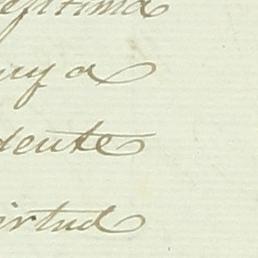 eptima
uya
dente
irtud